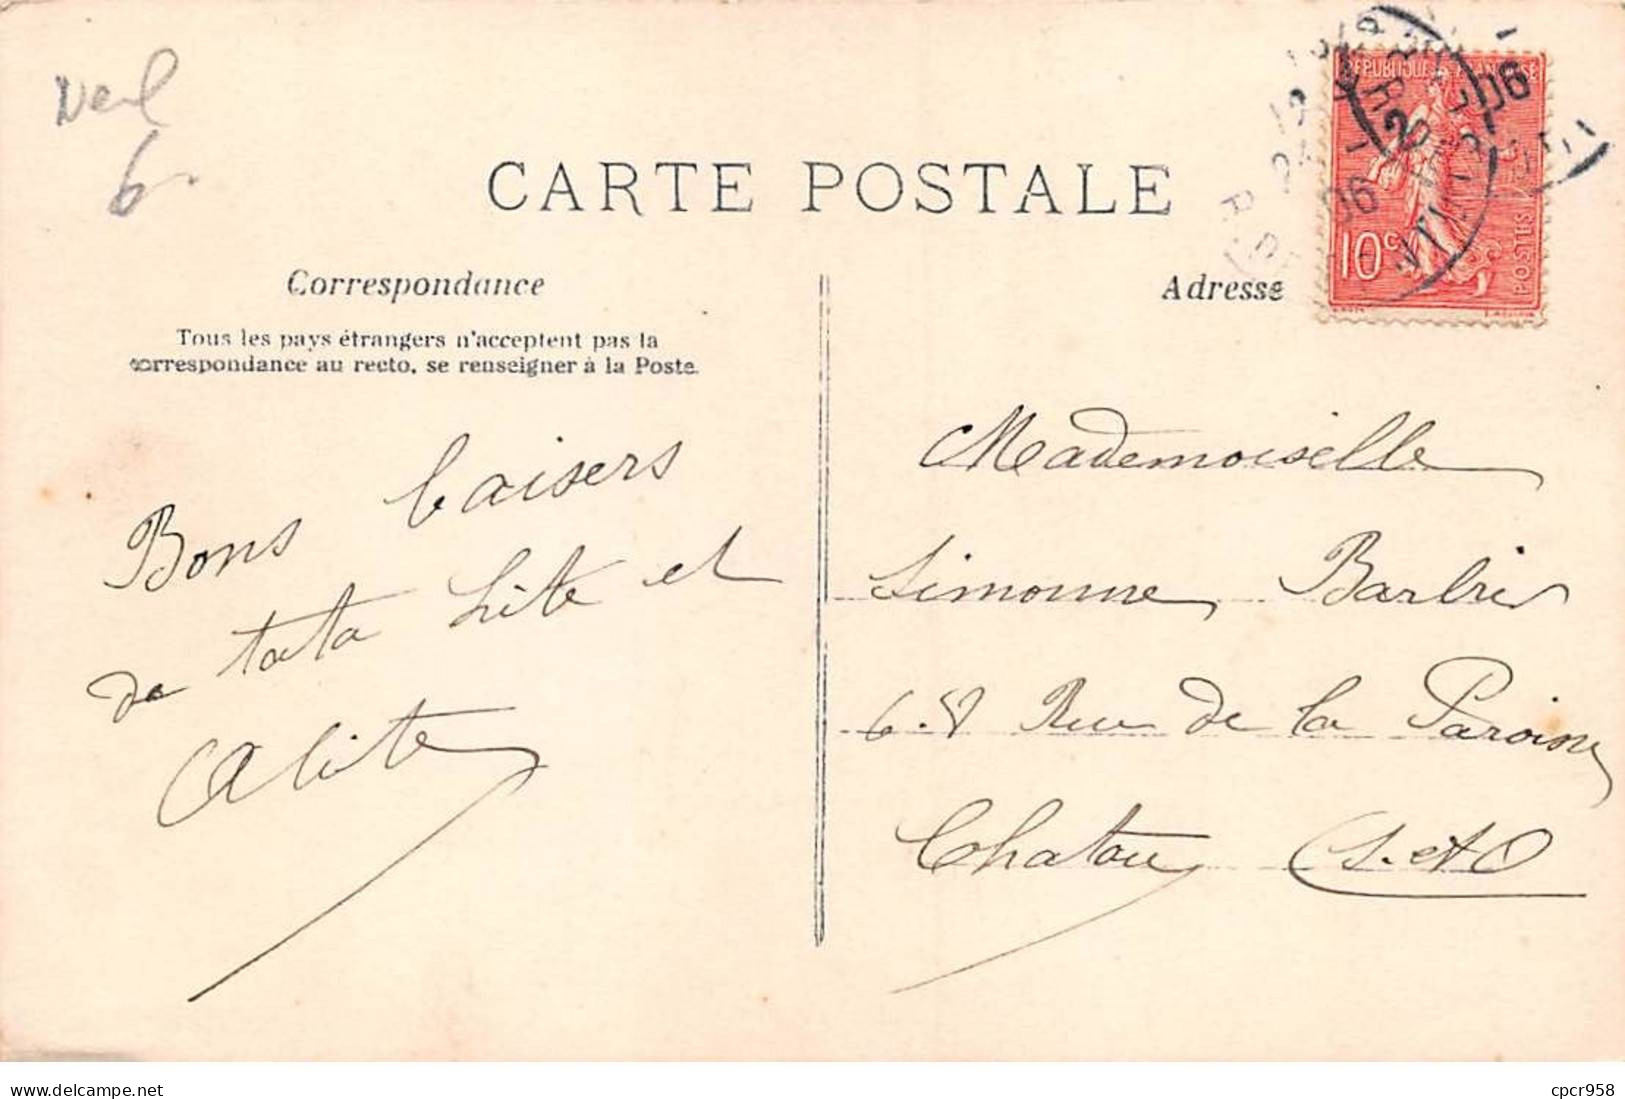 6
CARTE POSTALE
RÉPUBLIQUE FRANÇAISE
10c
POSTES
06
06
Correspondance
Adresse
Tous les pays étrangers n'acceptent pas la
correspondance au recto, se renseigner à la Poste.
Bons baisers
de tata Lite et
Mademoiselle
Simonne Barbier
68 Rue de la Paroisse
Chatou (S. et O)
www.delcampe.net
cpcr958